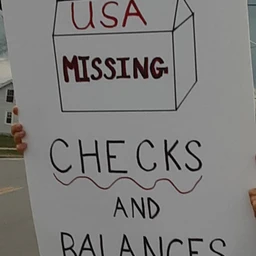 USA
MISSING
CHECKS
AND
BALANCES